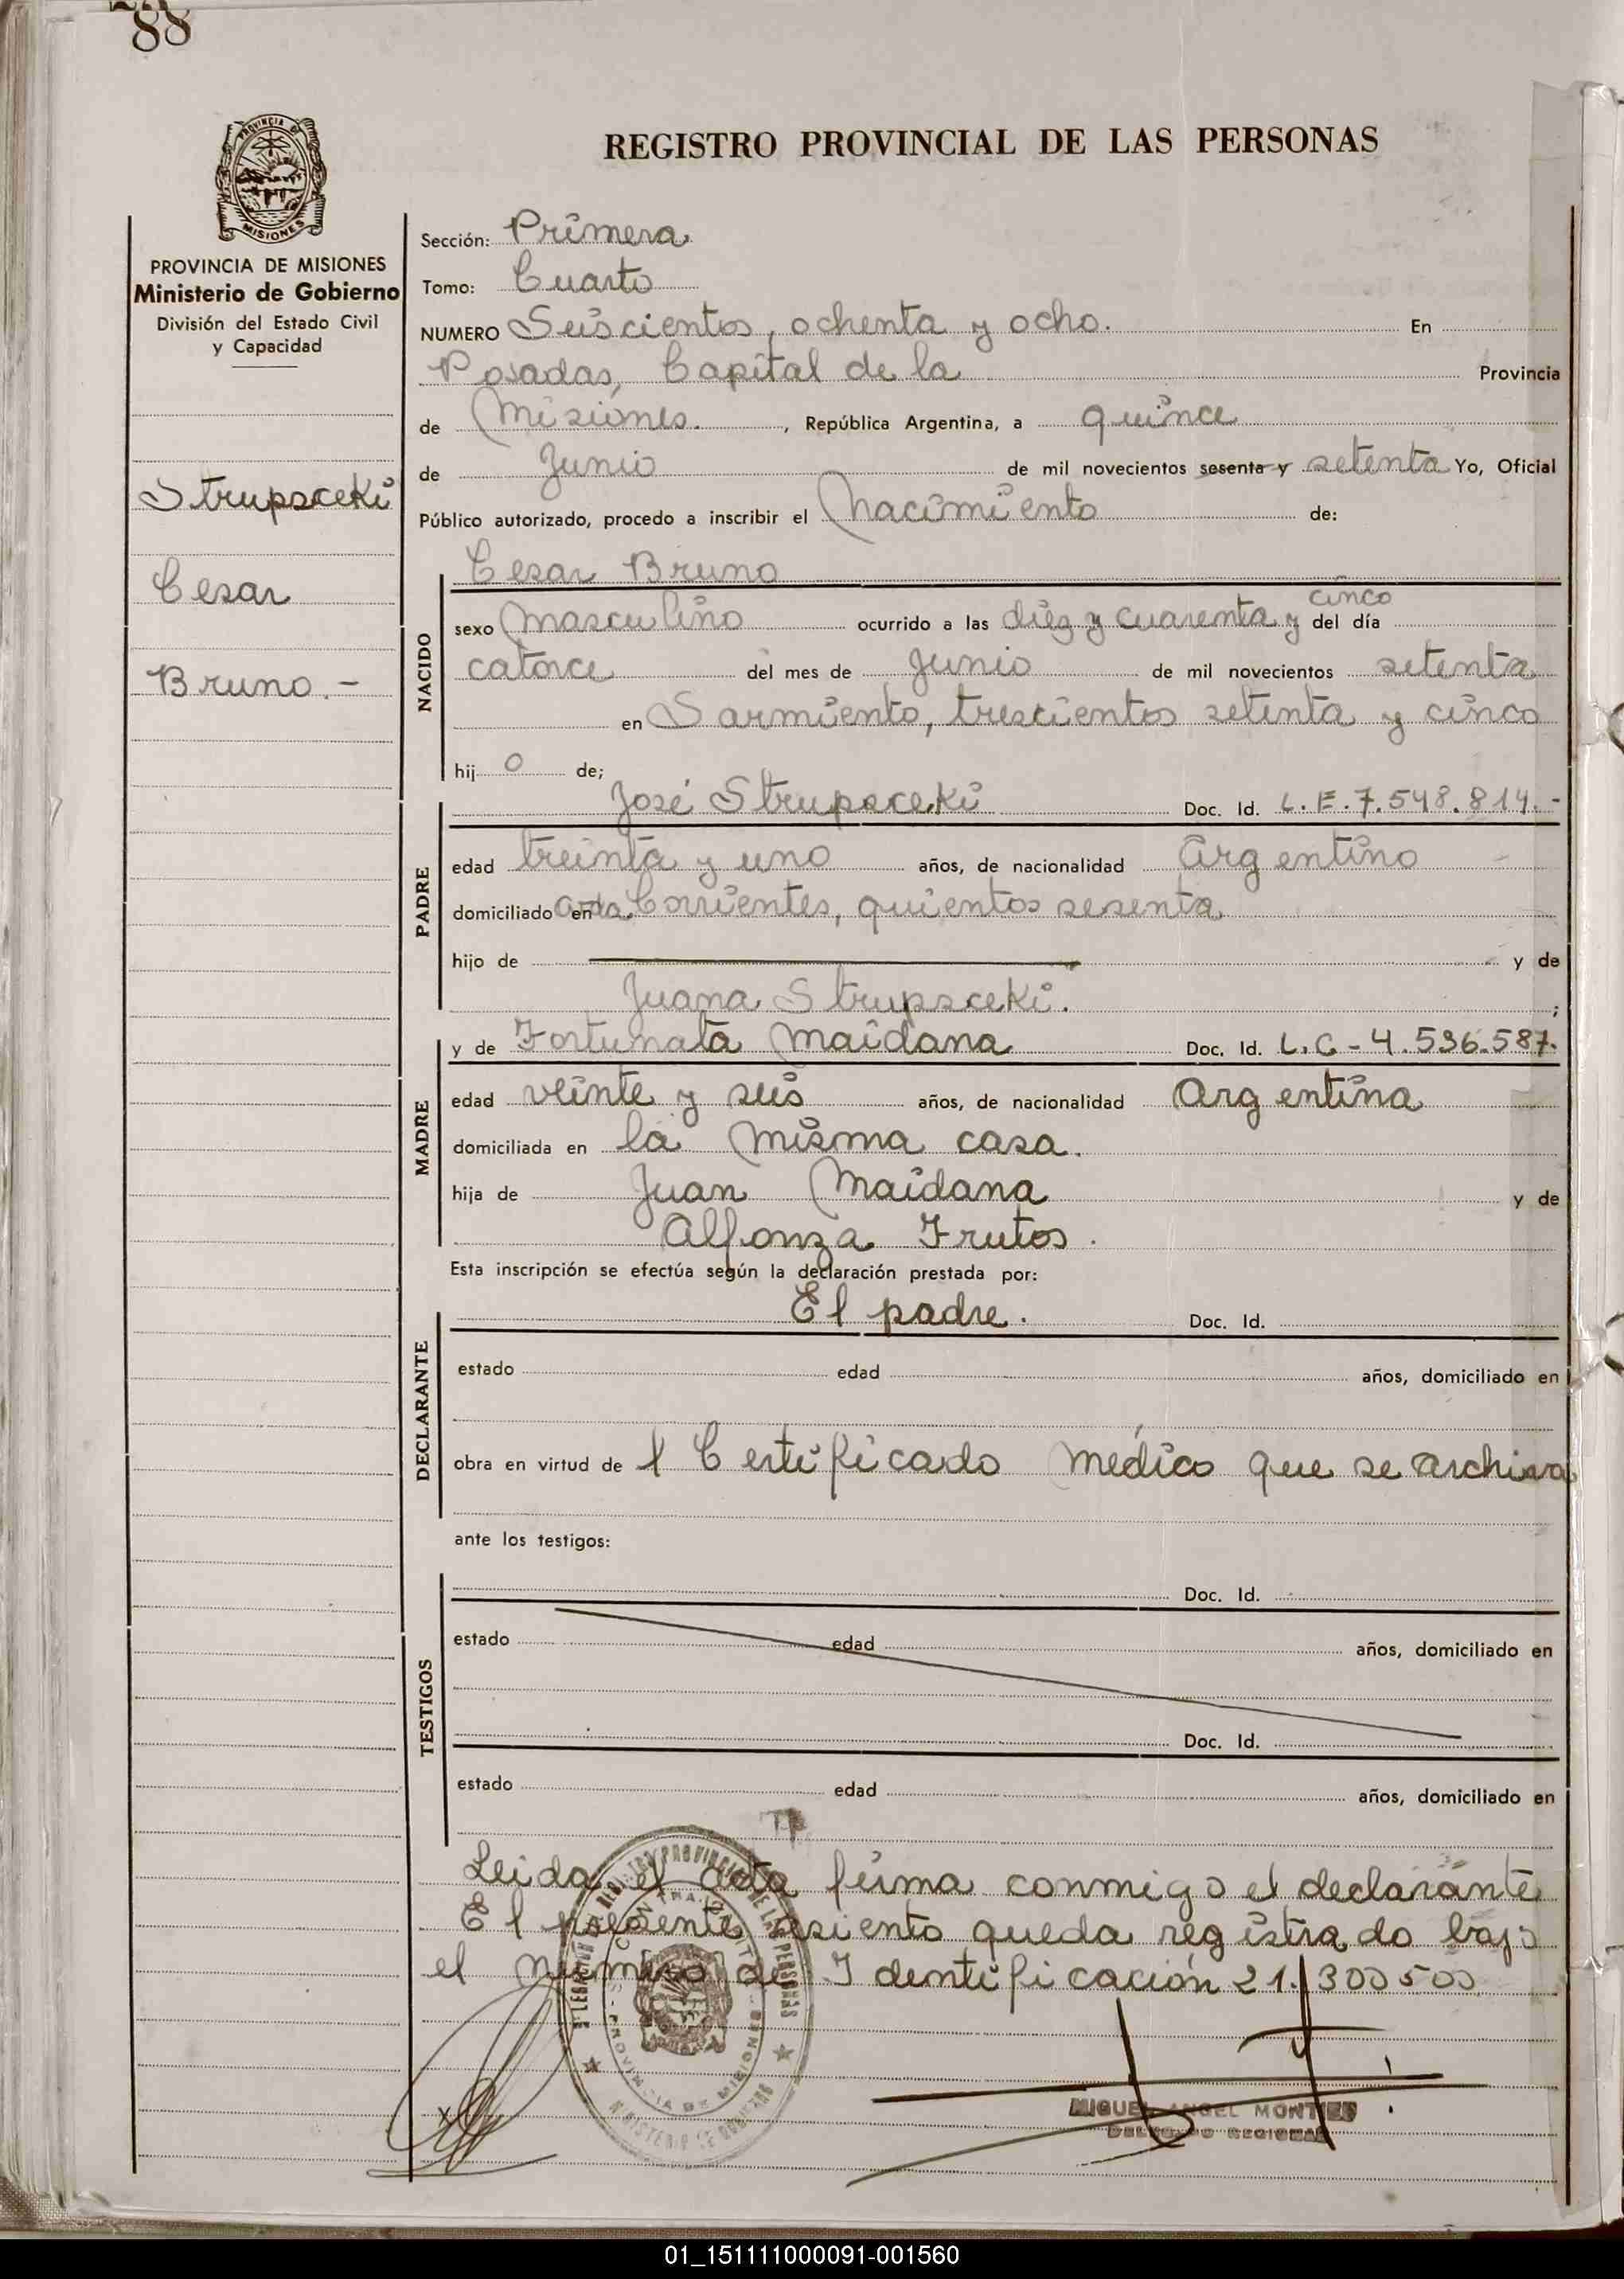 88
REGISTRO PROVINCIAL DE LAS PERSONAS
PROVINCIA DE
MISIONES
PROVINCIA DE MISIONES
Ministerio de Gobierno
División del Estado Civil
y Capacidad
Strupsceki
Cesar
Bruno.-
Sección: Primera
Tomo: Cuarto
NUMERO Seiscientos, ochenta y ocho. En
Posadas, Capital de la Provincia
de Misiones. , República Argentina, a quince
de Junio de mil novecientos sesenta y setenta Yo, Oficial
Público autorizado, procedo a inscribir el Nacimiento de:
Cesar Bruno
NACIDO
cinco
sexo Masculino ocurrido a las diez y cuarenta y del día
catorce del mes de Junio de mil novecientos setenta
en Sarmiento, trescientos setenta y cinco
hij o de;
José Strupsceki Doc. Id. L.E.7.548.814.-
PADRE
edad treinta y uno años, de nacionalidad Argentino
domiciliado en avda. Corrientes, quientos sesenta
hijo de y de
Juana Strupsceki. ;
y de Fortunata Maidana Doc. Id. L.C-4.536.587.
MADRE
edad veinte y seis años, de nacionalidad Argentina
domiciliada en la misma casa.
hija de Juan Maidana y de
Alfonza Frutos.
Esta inscripción se efectúa según la declaración prestada por:
El padre. Doc. Id.
DECLARANTE
estado edad años, domiciliado en
obra en virtud de l Certificado Médico que se archiva
ante los testigos:
Doc. Id.
TESTIGOS
estado edad años, domiciliado en
Doc. Id.
estado edad años, domiciliado en
Leida el acta firma conmigo el declarante
El presente asiento queda registrado bajo
el número de Identificación 21.300500
REGISTRO PROVINCIAL DE LAS PERSONAS
PROVINCIA DE MISIONES
MINISTERIO DE GOBIERNO
MIGUEL ANGEL MONTIEL
DELEGADO REGIONAL
01_151111000091-001560